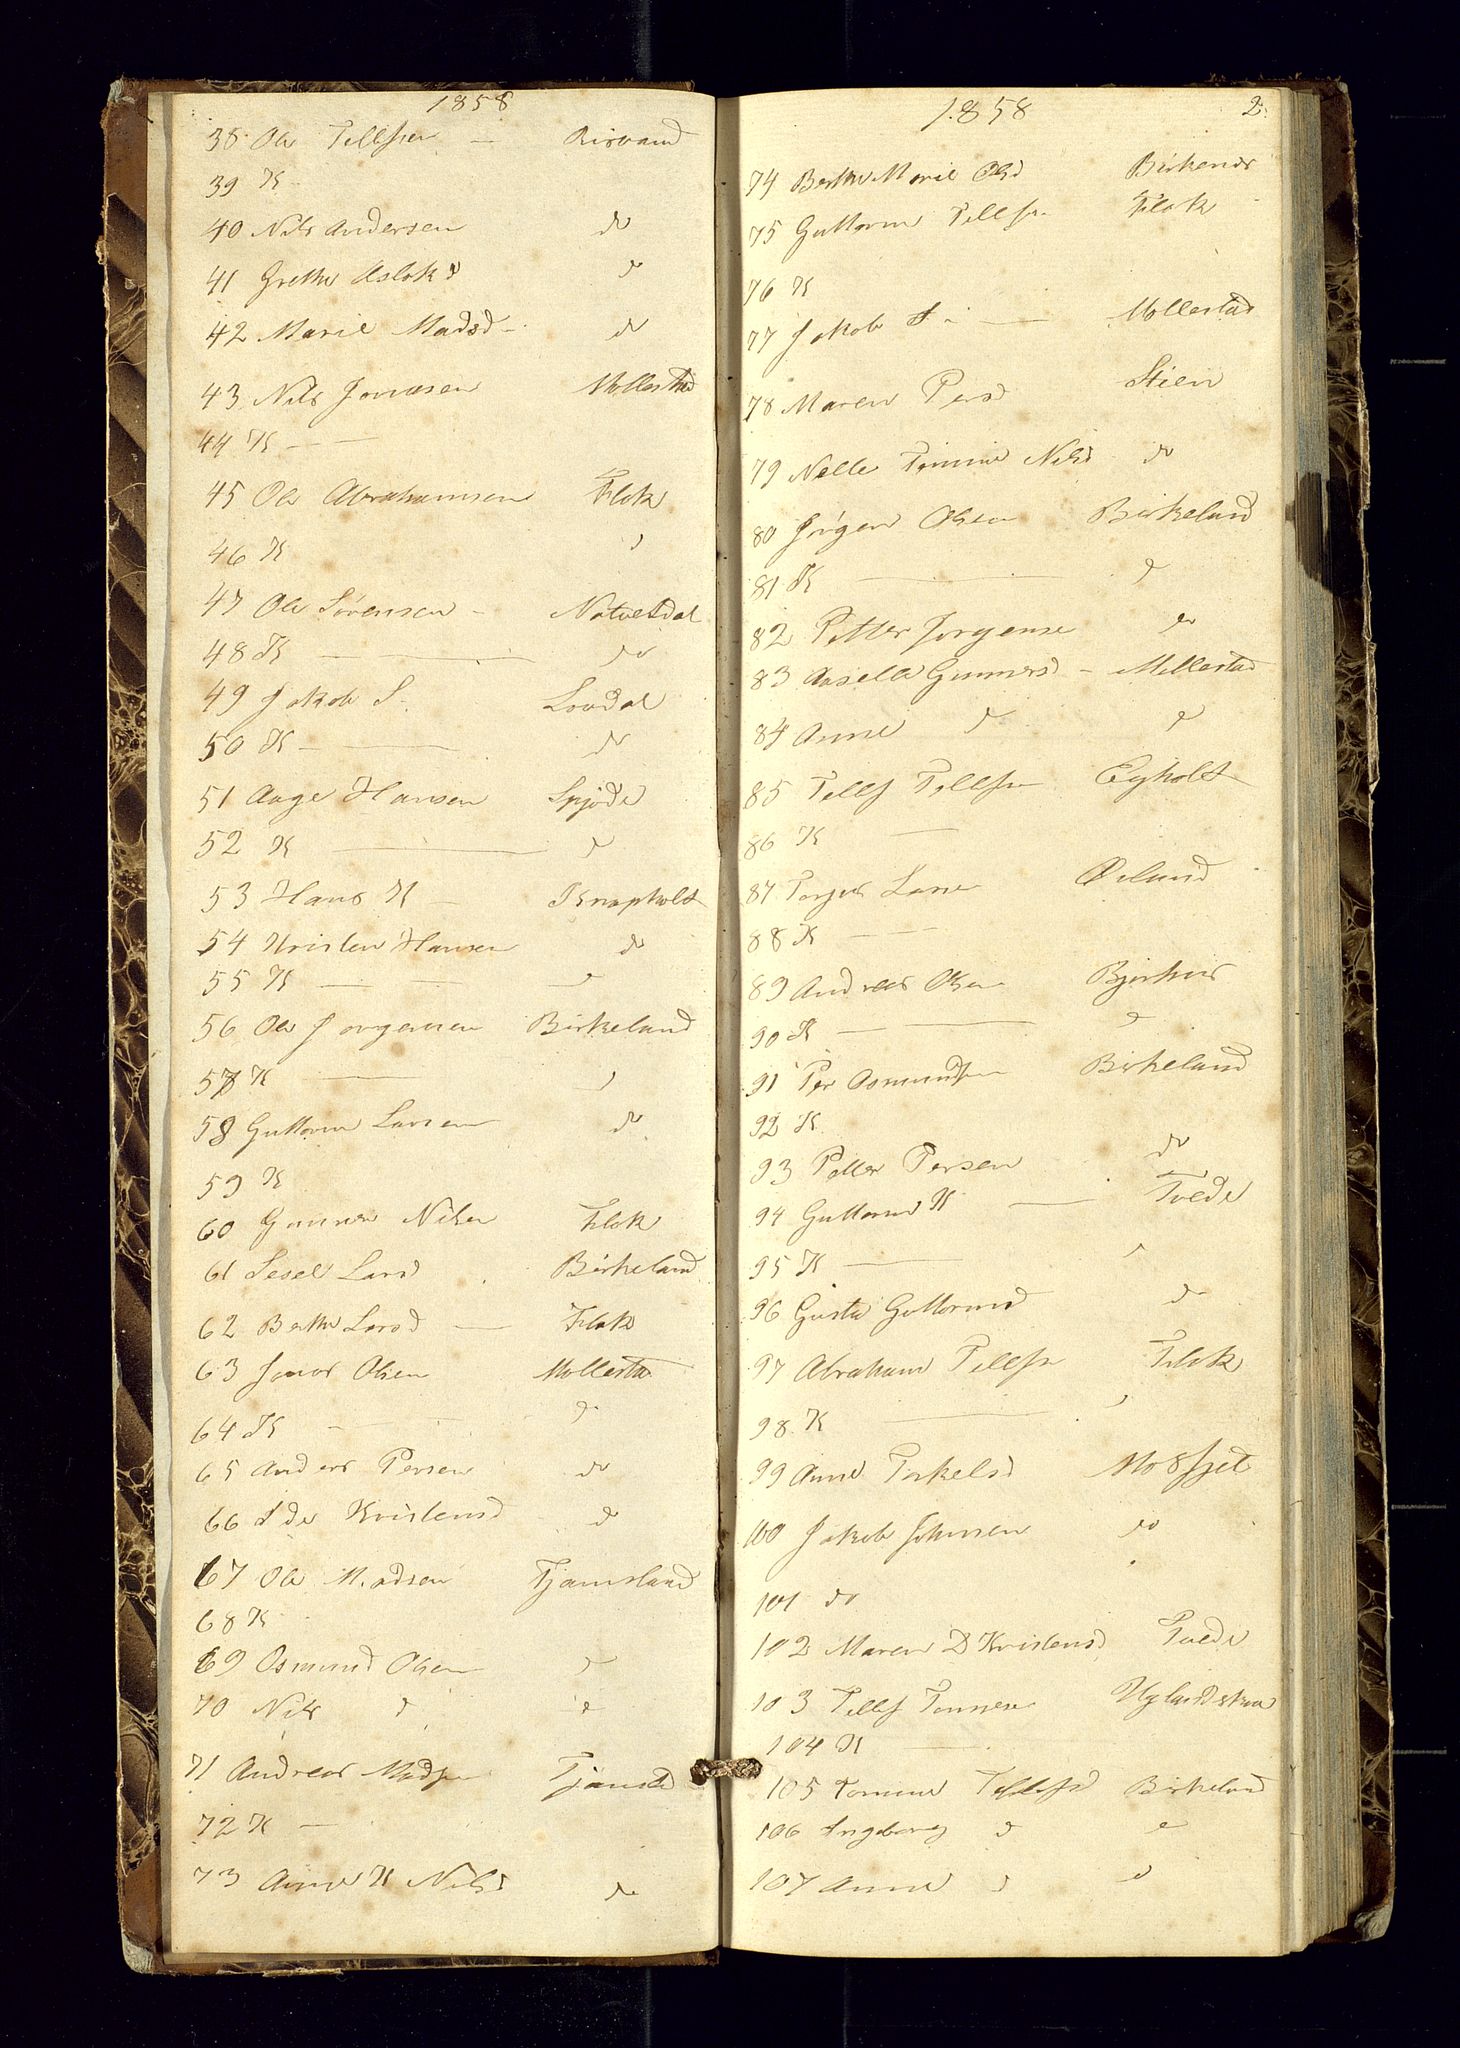 1858
38 Ole Tellfsen — Risvand
39 K -
40 Nils Andersen do
41 Grethe Aslaks d
42 Marie Madsd - do
43 Nils Jonasen Mollestad
44 K — —
45 Ole Abrahamsen Flak
46 K
47 Ole Sørensen - Natvetdal
48 K — — do
49 Jakob S. Lovdal
50 K — — do
51 Aage Hansen Spjøde
52 K — d
53 Hans K — Knapholt
54 Kristen Hansen do
55 K — —
56 Ole Jørgensen Birkeland
57 K —
58 Guttorm Larsen do
59 K
60 Gunner Nilsen Flak
61 Sesel Larsd Birkeland
62 Berthe Larsd — Flak
63 Jonas Olsen Mollesta
64 K - - d
65 Anders Persen do
66 Ide Kristensd d
67 Ole Madsen Tjamsland
68 K
69 Osmund Olsen d
70 Nils d d
71 Andreas Madsen
72 K —
73 Anne K Nilsd do
1858 2
74 Berthe Marie Olsd Birkenes
75 Guttorm Tellfsen Flak
76 K
77 Jakob S - — Mollestad
78 Maren Persd Stien
79 Nelle Tomine Nilsd do
80 Jørgen Olsen Birkeland
81 K — d
82 Petter Jørgense do
83 Aaselle Gunnersd - Mollestad
84 Anne d d
85 Tellf Tellfsen Egholt
86 K —
87 Torjus Larsen Øiland
88 K — —
89 Andreas Olsen
90 K — — d
91 Per Osmundsen Birkeland
92 K
93 Petter Persen do
94 Guttorm K — Tvede
95 K —
96 Gusta Guttormsd do
97 Abraham Tellfsen Flak
98 K —
99 Anne Terkelsd Mosfjel
100 Jakob Johnsen do
101 do
102 Maren D Kristensd Tvede
103 Tellf Tommesen
104 K —
105 Tomine Tellefsd Birkeland
106 Ingeborg d d
107 Anne d d